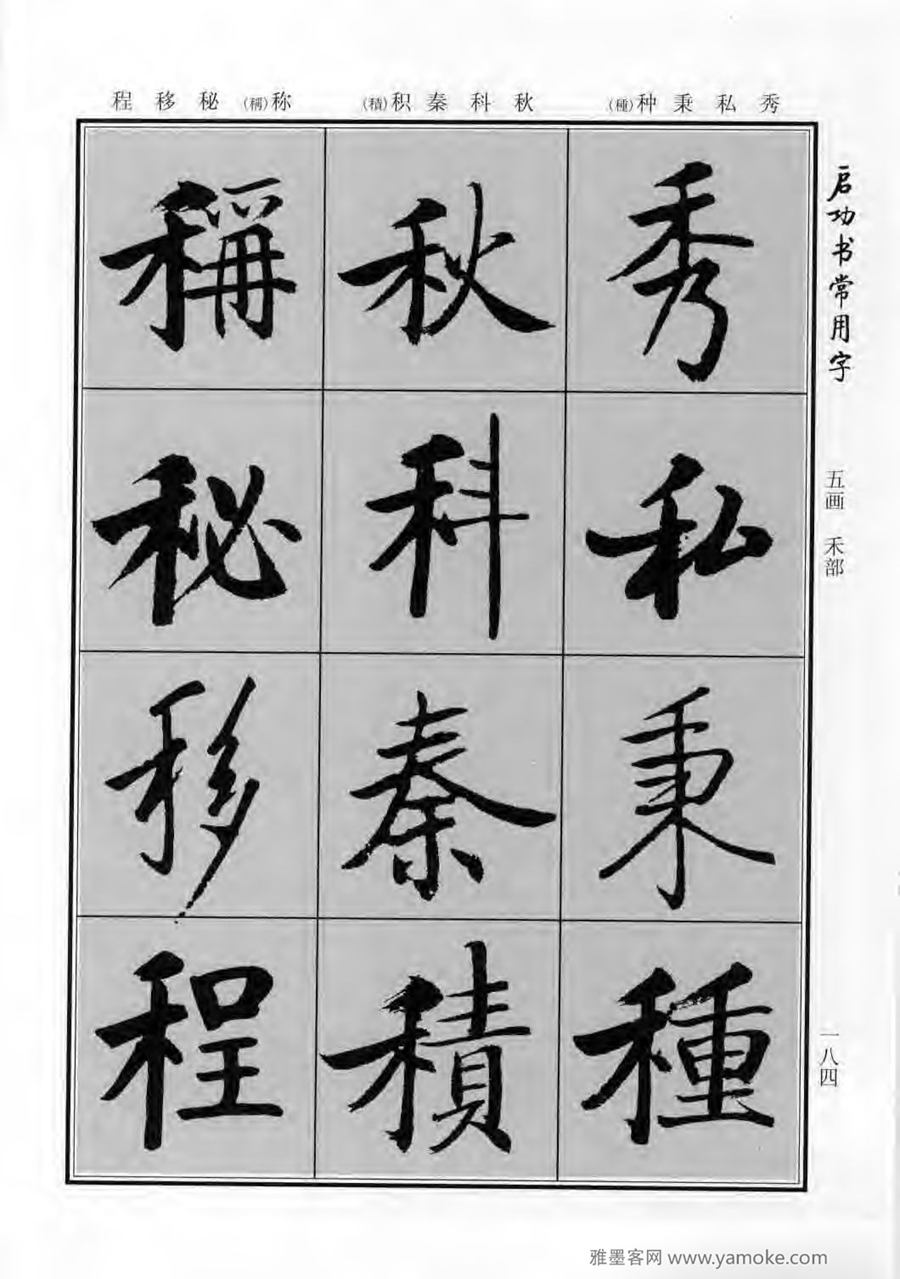 秀私秉种(種)
秋科秦积(積)
称(稱)秘移程
启功书常用字
五画 禾部
一八四
秀私秉種
秋科秦積
稱秘移程
雅墨客网 www.yamoke.com